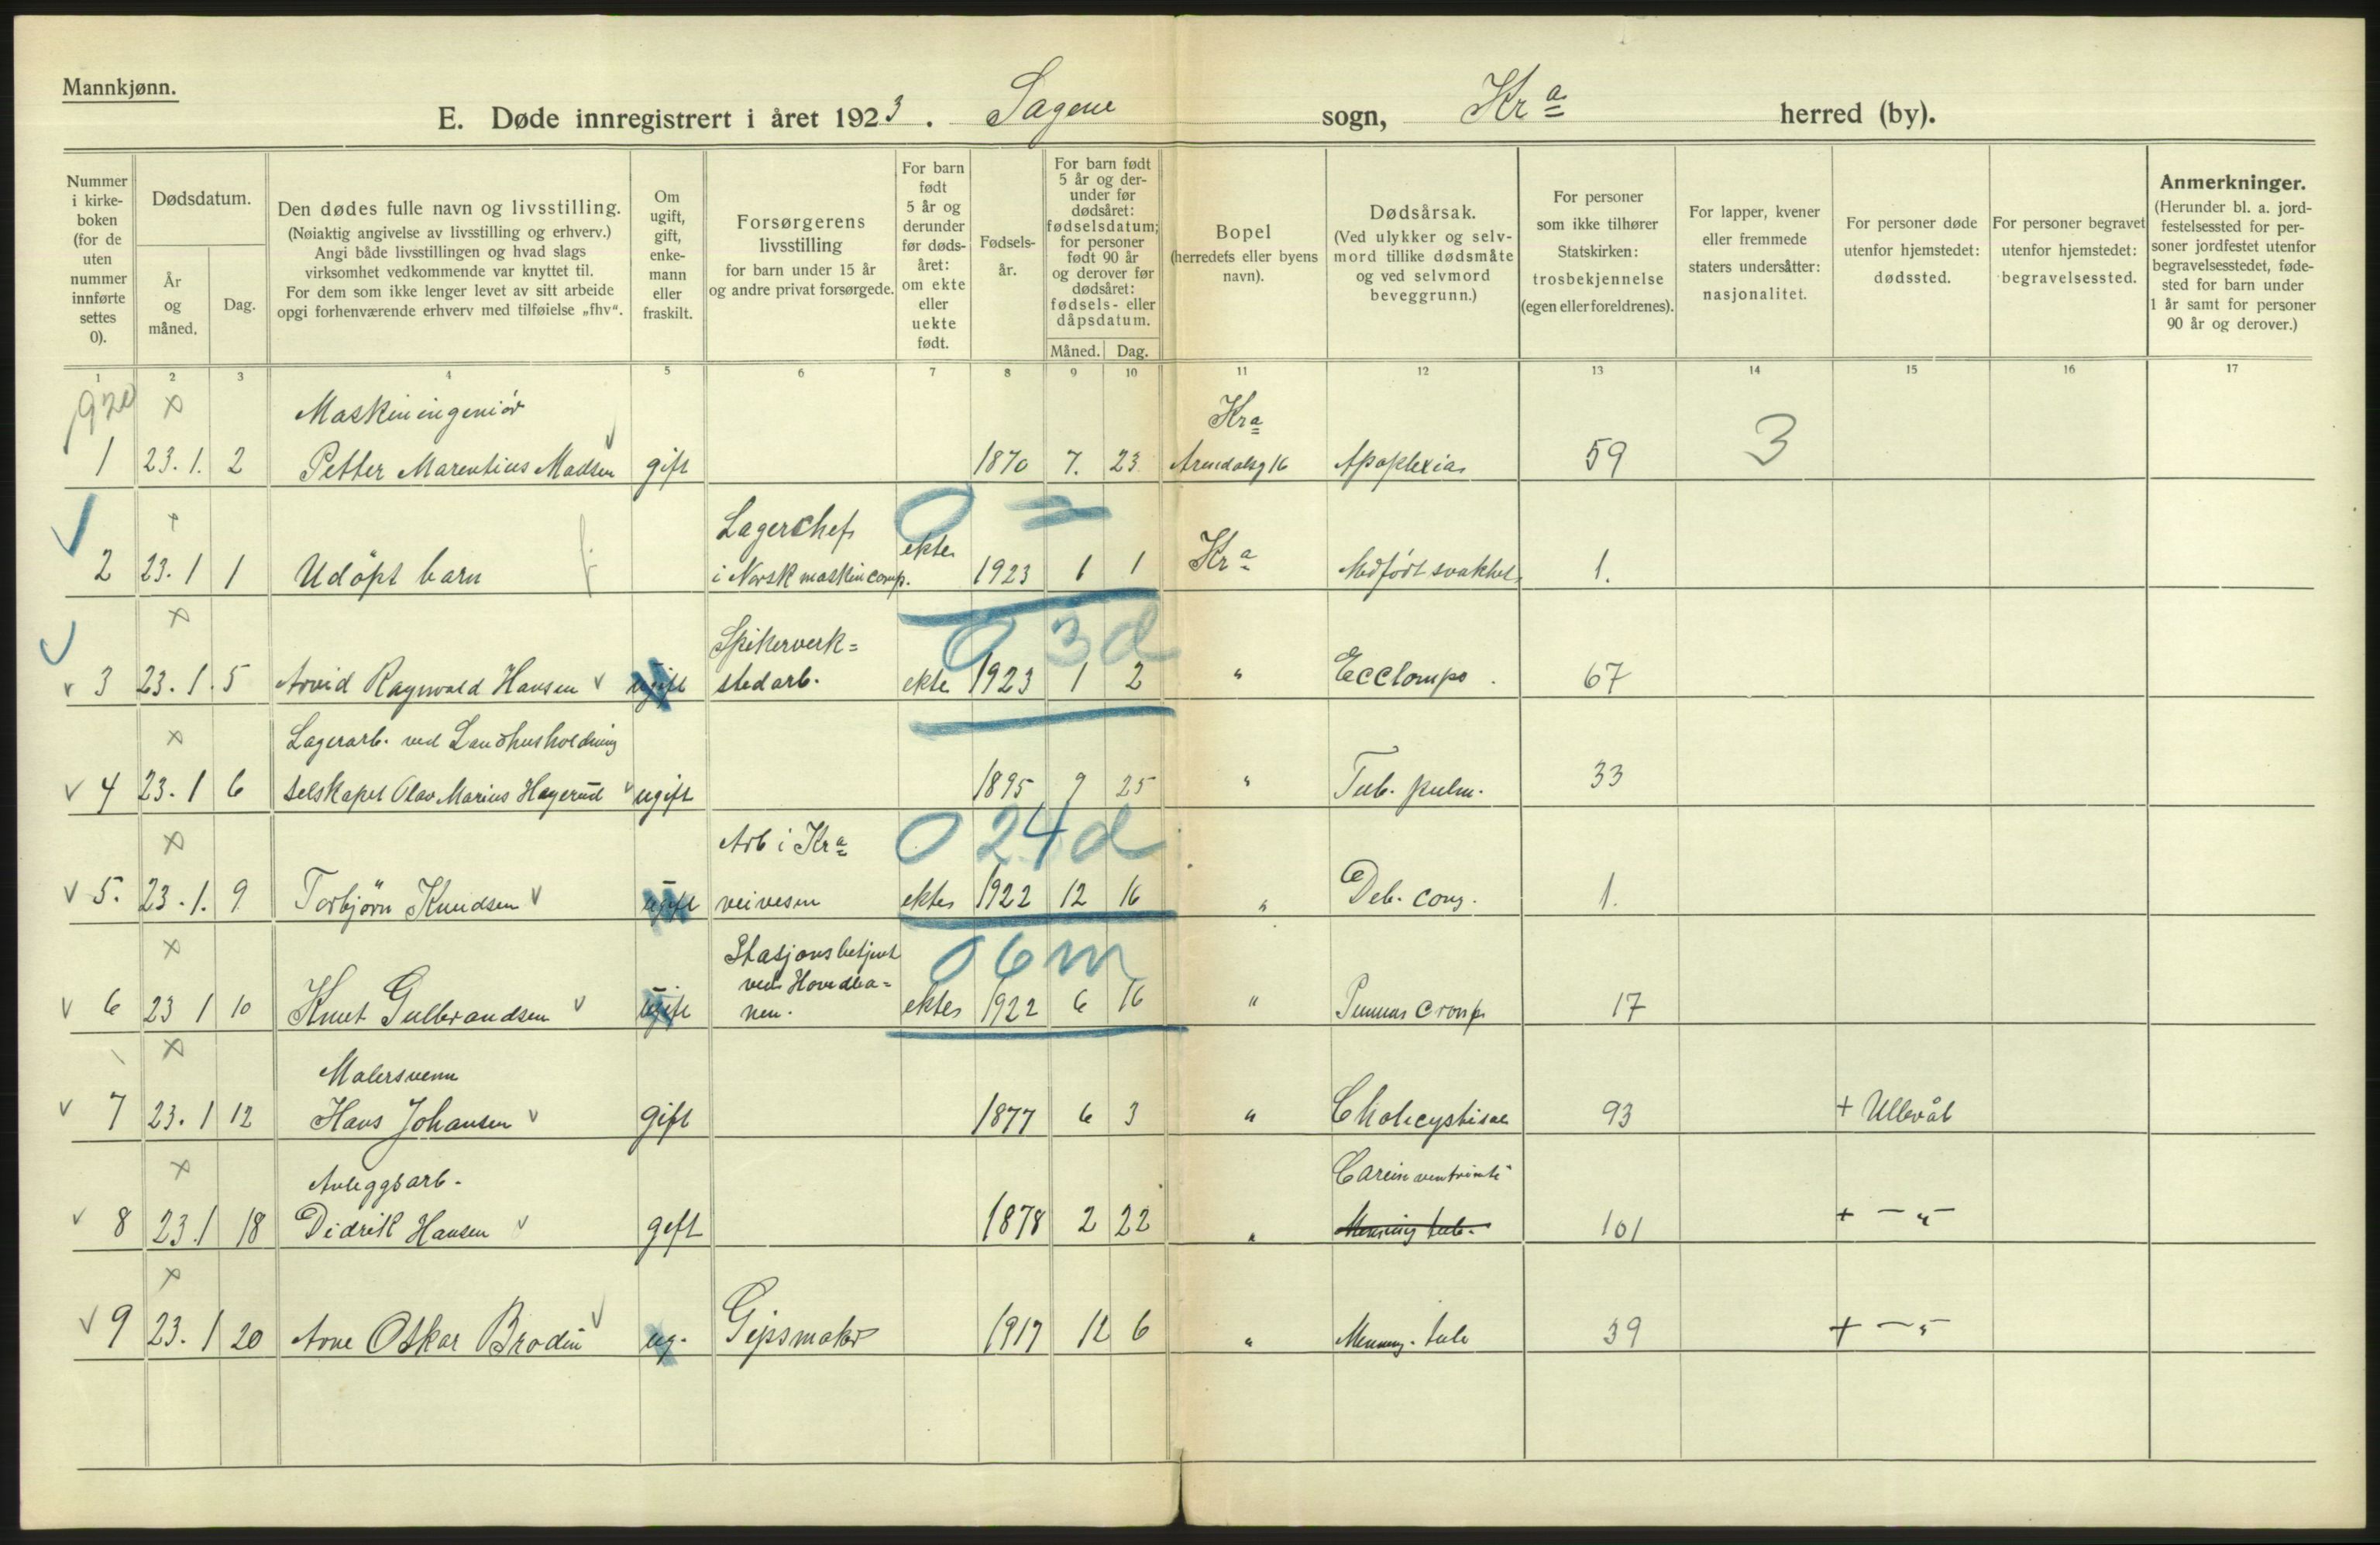 Mannkjønn.
E. Døde innregistrert i året 1923. Sagene sogn, Kra herred (by).
Nummer i kirke-boken (for de uten nummer innførte settes 0).
Dødsdatum.
År og måned.
Dag.
Den dødes fulle navn og livsstilling.
(Nøiaktig angivelse av livsstilling og erhverv.)
Angi både livsstillingen og hvad slags
virksomhet vedkommende var knyttet til.
For dem som ikke lenger levet av sitt arbeide
opgi forhenværende erhverv med tilføielse „fhv“.
Om ugift, gift, enke-mann eller fraskilt.
Forsørgerens livsstilling
for barn under 15 år
og andre privat forsørgede.
For barn født 5 år og derunder før døds-året: om ekte eller uekte født.
Fødsels-år.
For barn født 5 år og der-under før dødsåret: fødselsdatum; for personer født 90 år og derover før dødsåret: fødsels- eller dåpsdatum.
Måned. Dag.
Bopel
(herredets eller byens navn).
Dødsårsak.
(Ved ulykker og selv-mord tillike dødsmåte og ved selvmord beveggrunn.)
For personer som ikke tilhører Statskirken: trosbekjennelse (egen eller foreldrenes).
For lapper, kvener eller fremmede staters undersåtter: nasjonalitet.
For personer døde utenfor hjemstedet: dødssted.
For personer begravet utenfor hjemstedet: begravelsessted.
Anmerkninger.
(Herunder bl. a. jord-festelsessted for per-soner jordfestet utenfor begravelsesstedet, føde-sted for barn under 1 år samt for personer 90 år og derover.)
1 2 3 4 5 6 7 8 9 10 11 12 13 14 15 16 17
920 x Maskiningeniør Kra 3
1 23. 1. 2 Petter Marentius Madsen gift 1870 7. 23 Arendalsg 16 Apoplexia 59
Lagerchef 0 =
2 23. 1 1 Udöpt barn i Norsk maskincomp. ekte 1923 1 1 Kra Medfödt svakhet 1.
x Spikerverk= 0 3 d
3 23. 1. 5 Arvid Ragnvald Hansen ugift stedarb. ekte 1923 1 2 " Ecclamps. 67
x Lagerarb. ved Landhusholdning
4 23. 1 6 selskapet Olav Marius Hagerud ugift 1895 9 25 " Tub. pulm. 33
x Arb i Kra 0 24 d
5. 23. 1. 9 Torbjörn Knudsen ugift veivesen ekte 1922 12 16 " Deb. cong. 1.
x Stasjonsbetjent 0 6 m
ved Hovedba=
6 23 1 10 Knut Gulbrandsen ugift nen. ekte 1922 6 16 " croup 17
x Malersvenn
7 23. 1 12 Hans Johansen gift 1877 6 3 " 93 + Ullevål
x Anleggsarb. Carcin ventriculi
8 23. 1 18 Didrik Hansen gift 1878 2 22 " Mening tub. 101 + — " —
x
9 23. 1 20 Arne Oskar Brodin ug. Gipsmaker 1917 12 6 " Mening. tub 39 + — " —